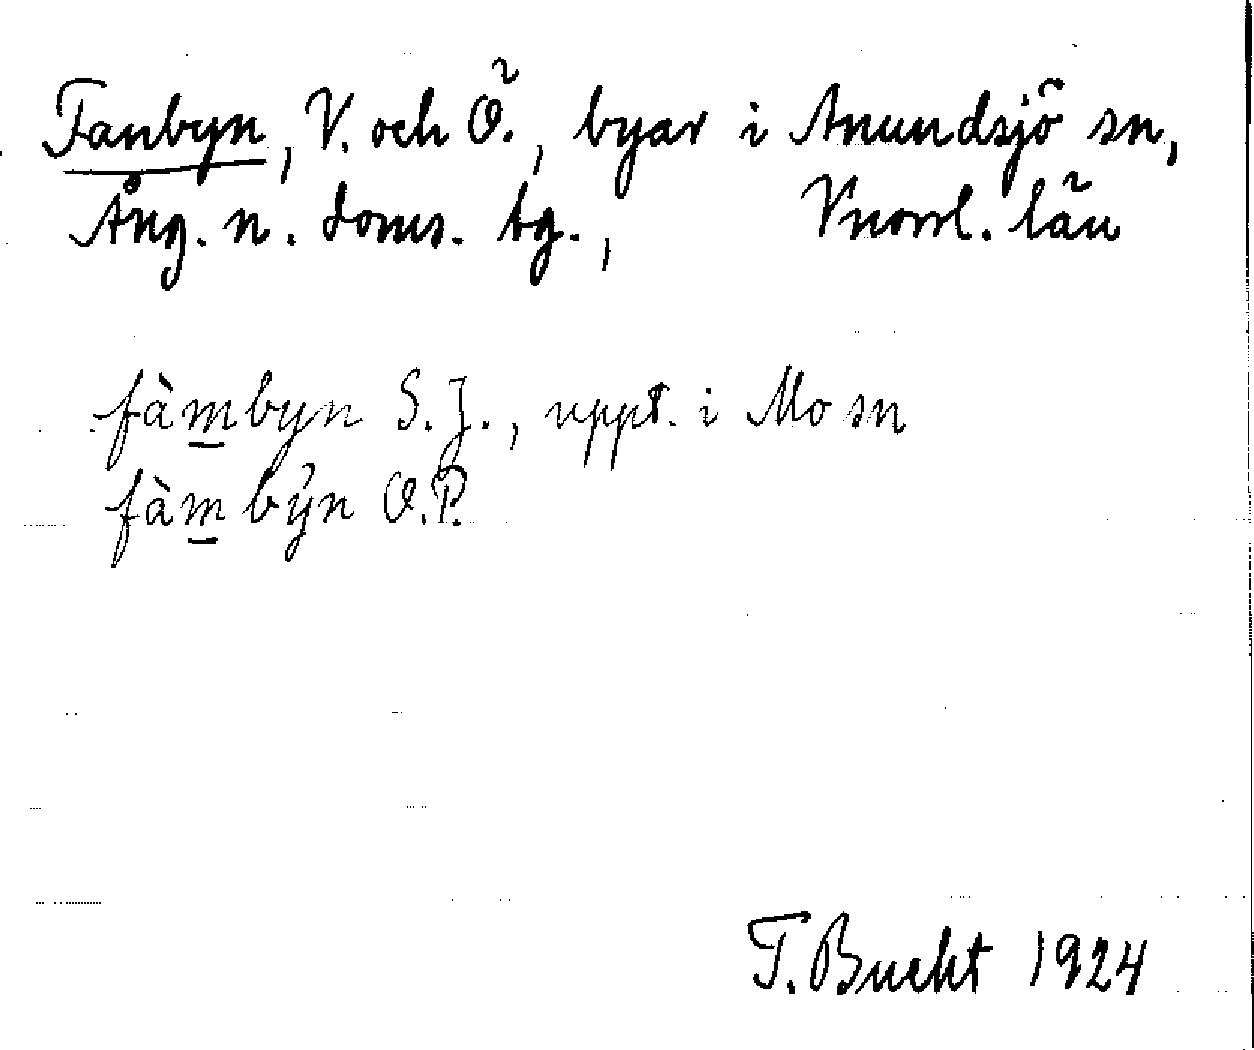 Fanbyn, V. och Ö., byar i Anundsjö sn,
Ång. n. doms. tg., Vnorrl. län
fàm̲byn S. J., uppt. i Mo sn
fàm̲bỳn O.P.
T. Bucht 1924